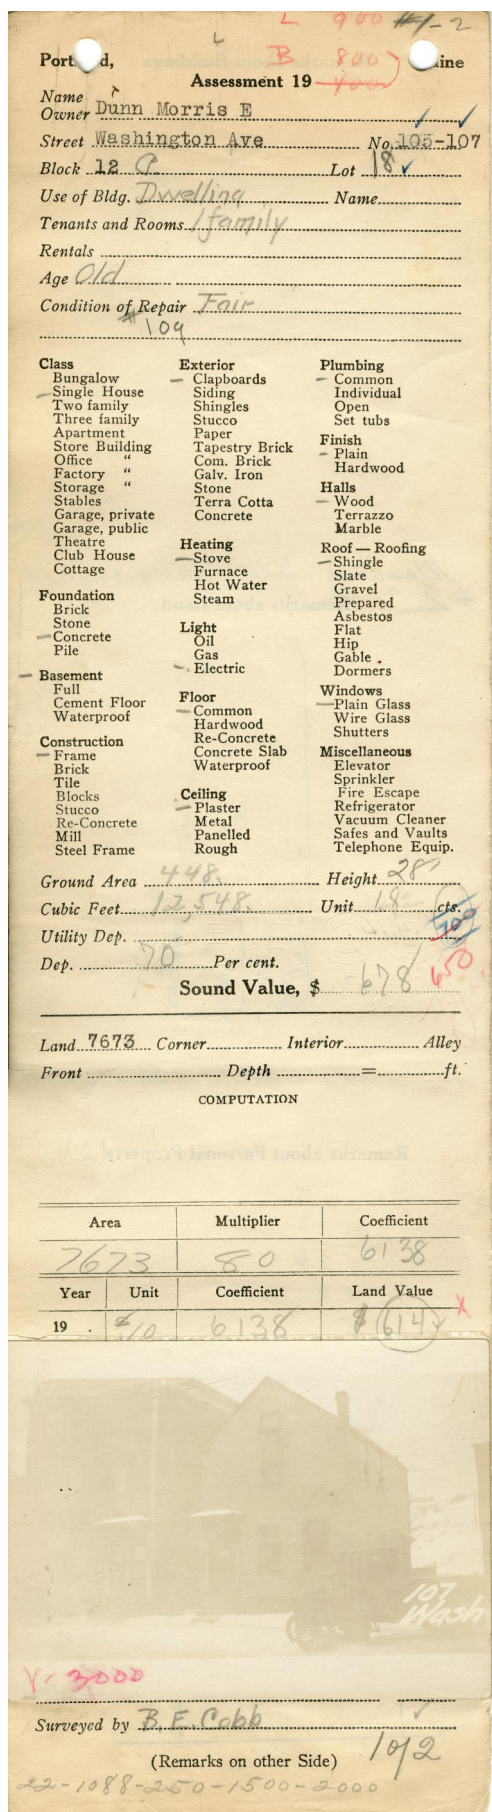 L 900 #1-2
Portland, Maine
L B 800
Assessment 19 400
Name
Owner Dunn Morris E
Street Washington Ave No. 105-107
Block 12 C Lot 18
Use of Bldg. Dwelling Name
Tenants and Rooms 1 family
Rentals
Age Old
Condition of Repair Fair
#109
Class
Bungalow
Single House
Two family
Three family
Apartment
Store Building
Office "
Factory "
Storage "
Stables
Garage, private
Garage, public
Theatre
Club House
Cottage
Foundation
Brick
Stone
Concrete
Pile
Basement
Full
Cement Floor
Waterproof
Construction
Frame
Brick
Tile
Blocks
Stucco
Re-Concrete
Mill
Steel Frame
Exterior
Clapboards
Siding
Shingles
Stucco
Paper
Tapestry Brick
Com. Brick
Galv. Iron
Stone
Terra Cotta
Concrete
Heating
Stove
Furnace
Hot Water
Steam
Light
Oil
Gas
Electric
Floor
Common
Hardwood
Re-Concrete
Concrete Slab
Waterproof
Ceiling
Plaster
Metal
Panelled
Rough
Plumbing
Common
Individual
Open
Set tubs
Finish
Plain
Hardwood
Halls
Wood
Terrazzo
Marble
Roof — Roofing
Shingle
Slate
Gravel
Prepared
Asbestos
Flat
Hip
Gable
Dormers
Windows
Plain Glass
Wire Glass
Shutters
Miscellaneous
Elevator
Sprinkler
Fire Escape
Refrigerator
Vacuum Cleaner
Safes and Vaults
Telephone Equip.
Ground Area 448 Height 28'
Cubic Feet 12,548 Unit 18 cts.
Utility Dep. 700
Dep. 70 Per cent.
Sound Value, $ 678 650
Land 7673 Corner Interior Alley
Front Depth = ft.
COMPUTATION
Area Multiplier Coefficient
7673 80 6138
Year Unit Coefficient Land Value
19 $10 6138 $ 614 x
107
Wash
V- 3000
Surveyed by B. E. Cobb
(Remarks on other Side) 1 of 2
22-1088-250-1500-2000